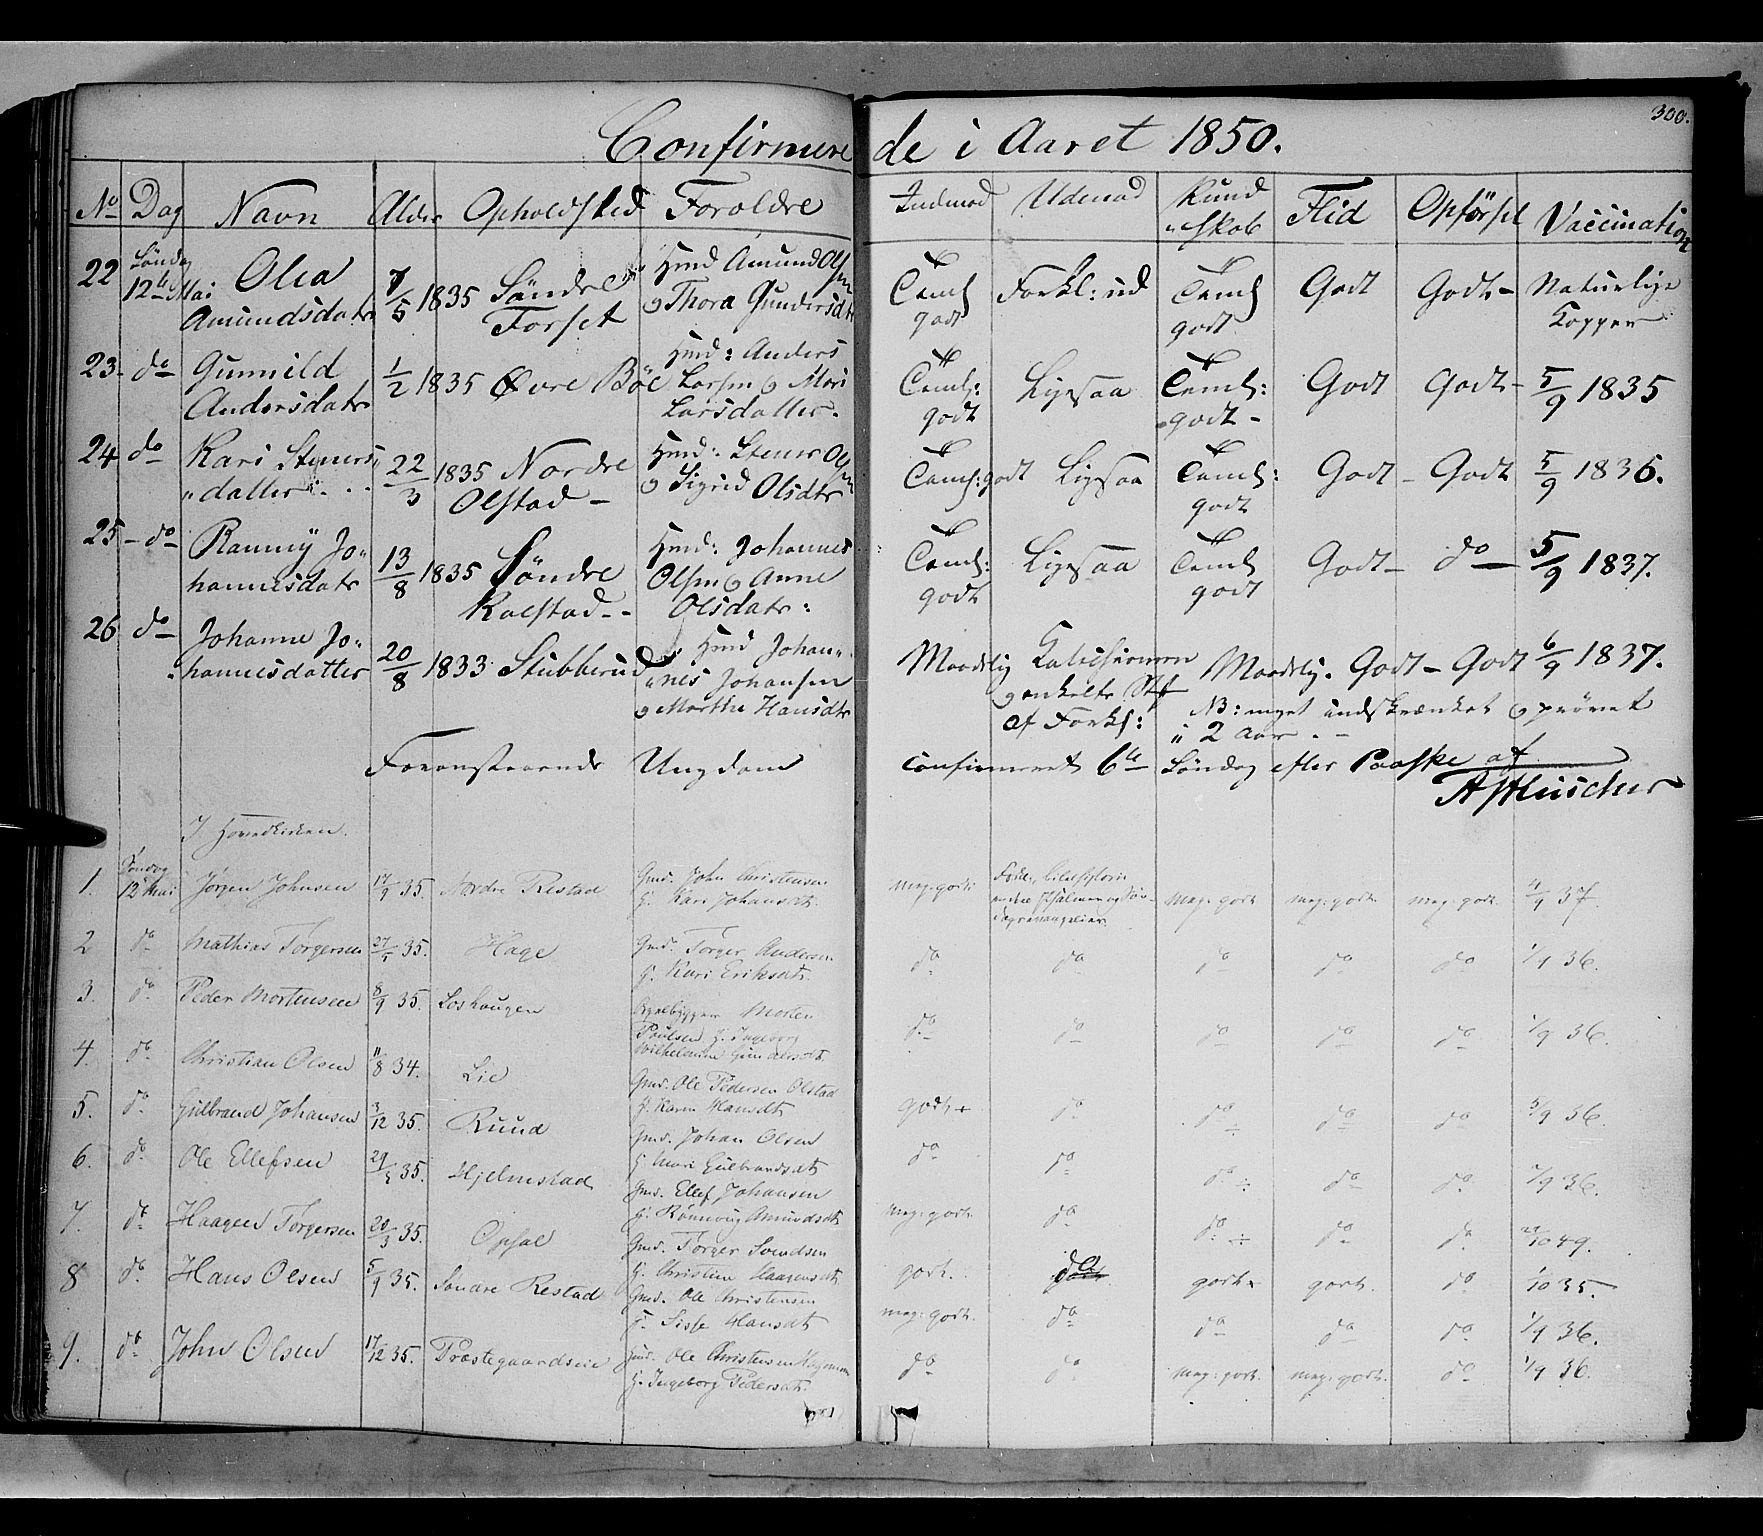 300.
Confirmerede i Aaret 1850.
No Dag Navn Alder Opholdsted Forældre Indmad Udenad Kundskab Flid Opförsel Vaccination
22 Søndag 12te Mai Olia Amundsdatr 7/5 1835 Søndre Forset Hmd Amund Olsen og Thora Gundersdtr Teml godt Forkl: ud Teml godt Godt Godt Naturlige Kopper
23 do Gunnild Andersdatr 1/2 1835 Øvre Böe Hmd: Anders Larsen og Mari Larsdatter Teml: godt Ligesaa Teml: godt Godt Godt 5/9 1835
24 do Kari Steners datter 22/3 1835 Nordre Olstad Hmd: Stener Olsen og Sigrid Olsdtr Teml: godt Ligesaa Teml: godt Godt Godt 5/9 1836.
25 do Ranny Johannesdatr 13/8 1835 Söndre Kalstad Hmd: Johannes Olsen og Anne Olsdatr: Teml: godt Ligesaa Teml godt Godt do 5/9 1837.
26 do Johanne Johannesdatter 20/8 1833 Stubberud Hmd Johannes Johansen og Marthe Hansdtr Maadelig Katechismen og enkelte St af Forkl: Maadelig. Godt Godt 6/9 1837.
NB: meget indskrænket og prövet i 2 Aar.
Foranstaaende Ungdom confirmeret 6te Søndag efter Paaske af
I Hovedkirken.
1. Søndag 12 Mai Jørgen Johnsen 17/9 35. Nordre Restad Gmd. John Christensen G. Kari Johansdt. meg: godt Forkl., Bibelhistorie endeel Psalmer og Søndagsevangelier meg: godt meg: godt. meg: godt. 4/9 37.
2 do Mathias Torgersen 35. Hage Gmd. Torger Andersen G. Kari Eriksdt. do do do do do 1/9 36.
3. do Peder Mortensen 8/9 35. Loshaugen Orgelbygger Morten Poulsen G. Ingeborg Wilhelmine Gundersdt. do do do do do 1/9 36.
4. do Christian Olsen 11/8 34. Lie Gmd. Ole Pedersen Olstad G. Karen Hansdt. godt do do do do 5/9 36.
5. do Gulbrand Johansen 3/12 35. Ruud Gmd. Johan Olsen G. Mari Gulbrandsdt. do do do do do 1/9 36.
6. do Ole Ellefsen 35. Hjelmstad Gmd. Ellef Johansen G. Rønnoug Amundsdt. meg: godt. do do do do 49.
7. do Haagen Torgersen 20/3 35. Opsal Gmd. Torger Svendsen G. Christine Haagensdt. godt. do godt godt. do 1/10 35.
8 do Hans Olsen 5/9 35. Søndre Restad Gmd. Ole Christensen G. Sisse Hansdt. meg: godt. do do do do 1/9 36.
9. do John Olsen 17/12 35. Præstegaardseie Hmd. Ole Christensen G. Ingeborg Pedersdt. do do meg: godt. meg: godt. do 1/9 36.